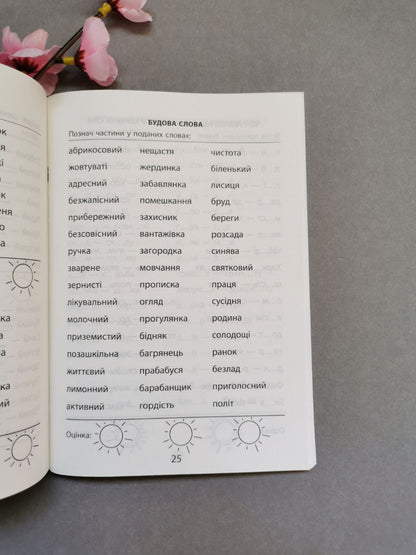 БУДОВА СЛОВА
Познач частини у поданих словах:
абрикосовий нещастя чистота
жовтуваті жердинка біленький
адресний забавлянка лисиця
безжалісний помешкання бруд
прибережний захисник береги
безсовісний вантажівка розсада
ручка загородка синява
зварене мовчання святковий
зернисті прописка праця
лікувальний огляд сусідня
молочний прогулянка родина
приземистий бідняк солодощі
позашкільна багрянець ранок
життєвий прабабуся безлад
лимонний барабанщик приголосний
активний гордість політ
Оцінка:
25